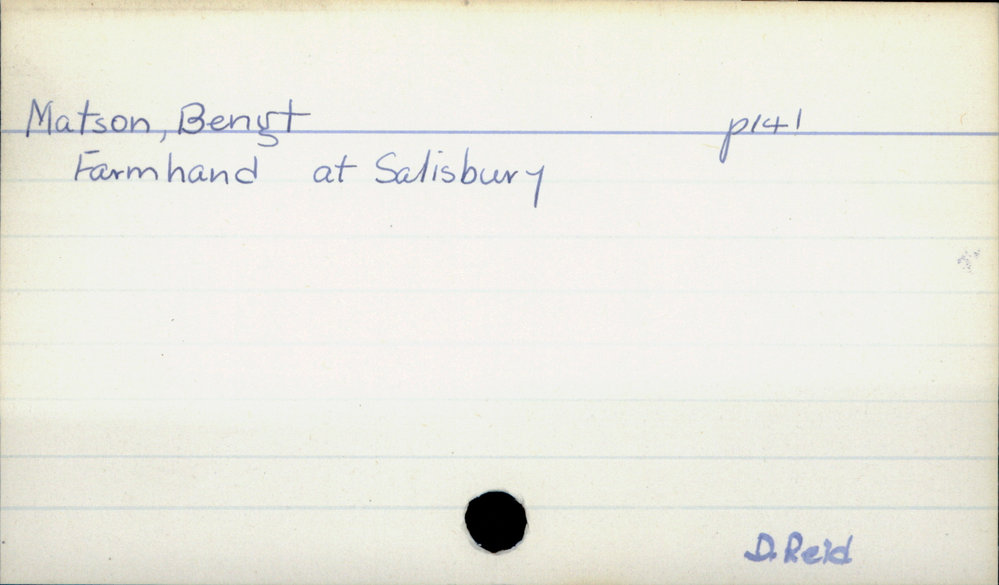 Matson, Bengt p141
Farmhand at Salisbury
D. Reid